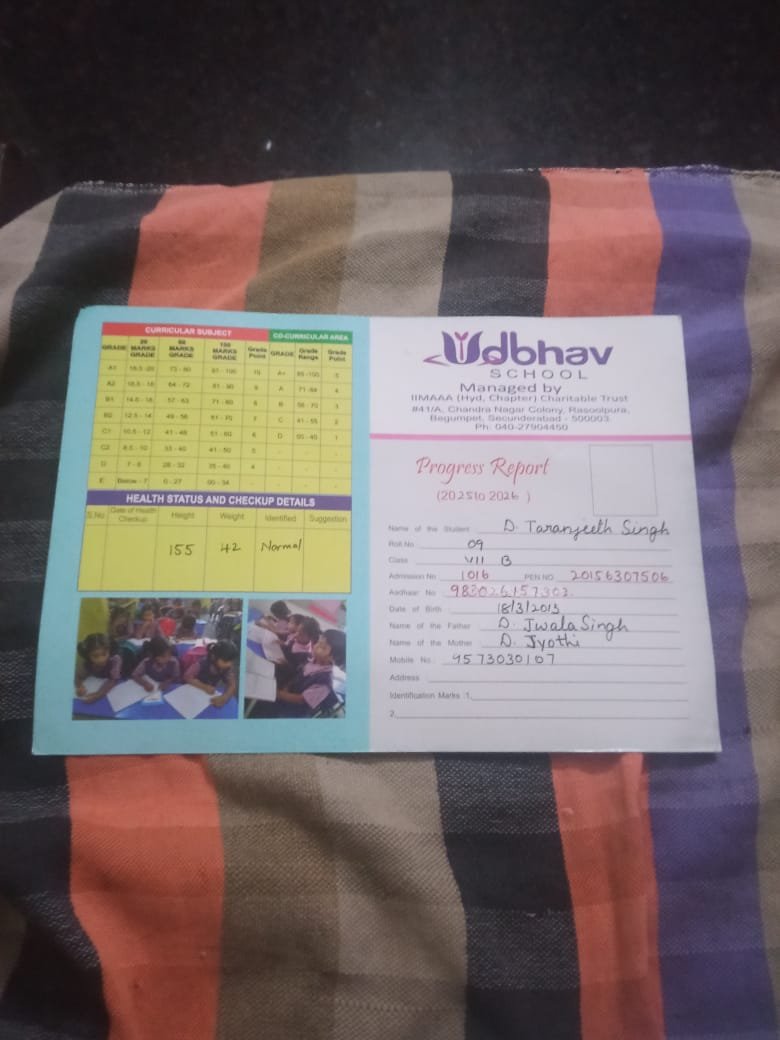 CURRICULAR SUBJECT CO-CURRICULAR AREA
GRADE 20 MARKS GRADE 80 MARKS GRADE 100 MARKS GRADE Grade Point GRADE Grade Range Grade Point
A1 73-80 91-100 10 A+ 85-100 5
A2 64-72 81-90 9 A 71-84 4
B1 57-63 71-80 8 B 56-70 3
B2 12.5-14 49-56 61-70 7 C 41-55 2
C1 10.5-12 41-48 51-60 6 D 00-40 1
C2 8.5-10 33-40 41-50 5 - - -
D 7-8 28-32 35-40 4
E Below-7 0-27 00-34
HEALTH STATUS AND CHECKUP DETAILS
S.No Date of Health Checkup Height Weight Identified Suggestion
155 42 Normal
Udbhav
SCHOOL
Managed by
IIMAAA (Hyd, Chapter) Charitable Trust
#41/A, Chandra Nagar Colony, Rasoolpura,
Begumpet, Secunderabad - 500003.
Ph: 040-27904450
Progress Report
(2025 to 2026)
Name of the Student D. Taranjeeth Singh
Roll No 09
Class VII B
Admission No 1016 PEN NO. 20156307506
Aadhaar No 983026157302
Date of Birth 18/3/2013
Name of the Father D. Jwala Singh
Name of the Mother D. Jyothi
Mobile No. 9573030107
Address
Identification Marks :1.
2.